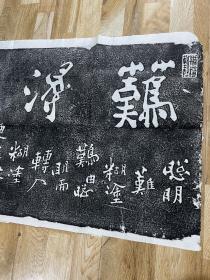 難得
聰明
難
糊塗
難由聰
明而
轉入
糊塗
更